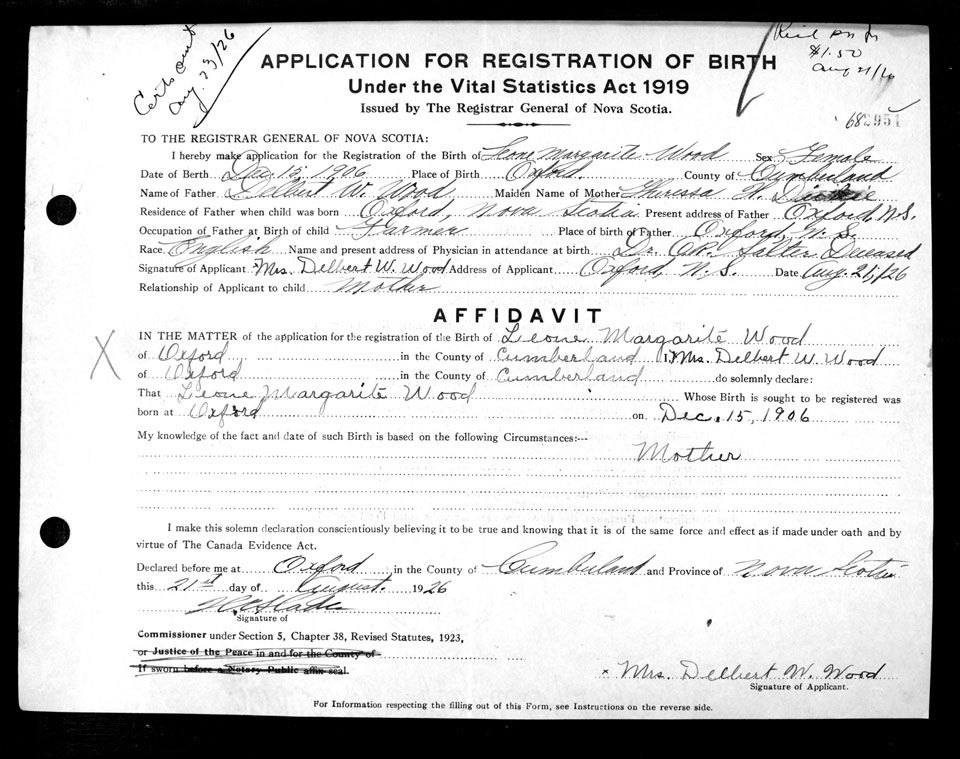 Certs out
Aug. 23/26
$1.50
Aug 21/26
APPLICATION FOR REGISTRATION OF BIRTH
Under the Vital Statistics Act 1919
Issued by The Registrar General of Nova Scotia.
682951
TO THE REGISTRAR GENERAL OF NOVA SCOTIA:
I hereby make application for the Registration of the Birth of Leone Margarite Wood Sex Female
Date of Berth Dec. 15, 1906 Place of Birth Oxford County of Cumberland
Name of Father Delbert W. Wood Maiden Name of Mother
Residence of Father when child was born Oxford, Nova Scotia Present address of Father Oxford, N.S.
Occupation of Father at Birth of child Farmer Place of birth of Father Oxford, N.S.
Race English Name and present address of Physician in attendance at birth Dr. Salter Deceased
Signature of Applicant Mrs. Delbert W. Wood Address of Applicant Oxford, N.S. Date Aug. 21/26
Relationship of Applicant to child Mother
AFFIDAVIT
IN THE MATTER of the application for the registration of the Birth of Leone Margarite Wood
of Oxford in the County of Cumberland I, Mrs. Delbert W. Wood
of Oxford in the County of Cumberland do solemnly declare:
That Leone Margarite Wood Whose Birth is sought to be registered was
born at Oxford on Dec. 15, 1906
My knowledge of the fact and date of such Birth is based on the following Circumstances:---
Mother
I make this solemn declaration conscientiously believing it to be true and knowing that it is of the same force and effect as if made under oath and by
virtue of The Canada Evidence Act.
Declared before me at Oxford in the County of Cumberland and Province of Nova Scotia
this 21st day of August. 1926
Signature of
Commissioner under Section 5, Chapter 38, Revised Statutes, 1923,
or Justice of the Peace in and for the County of
If sworn before a Notary Public affix seal.
x Mrs. Delbert W. Wood
Signature of Applicant.
For Information respecting the filling out of this Form, see Instructions on the reverse side.